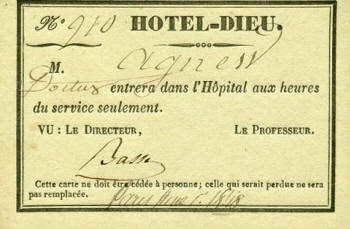 N.° 910 HOTEL-DIEU.
M. Agnew
Docteur entrera dans l'Hôpital aux heures
du service seulement.
VU : LE DIRECTEUR, LE PROFESSEUR.
Cette carte ne doit être cédée à personne; celle qui serait perdue ne sera
pas remplacée.